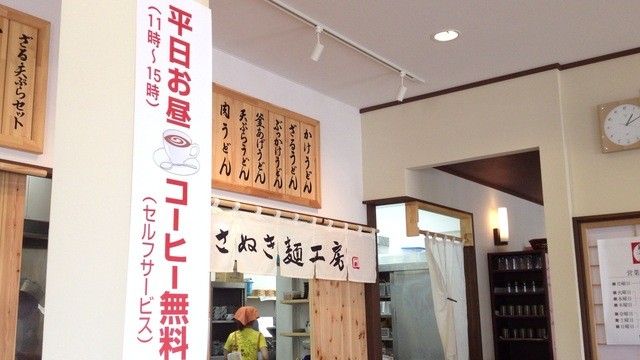 ざる天ぷらセット
平日お昼 コーヒー無料
(11時〜15時)
(セルフサービス)
かけうどん
ざるうどん
ぶっかけうどん
釜あげうどん
天ぷらうどん
肉うどん
さぬき麺工房
営業